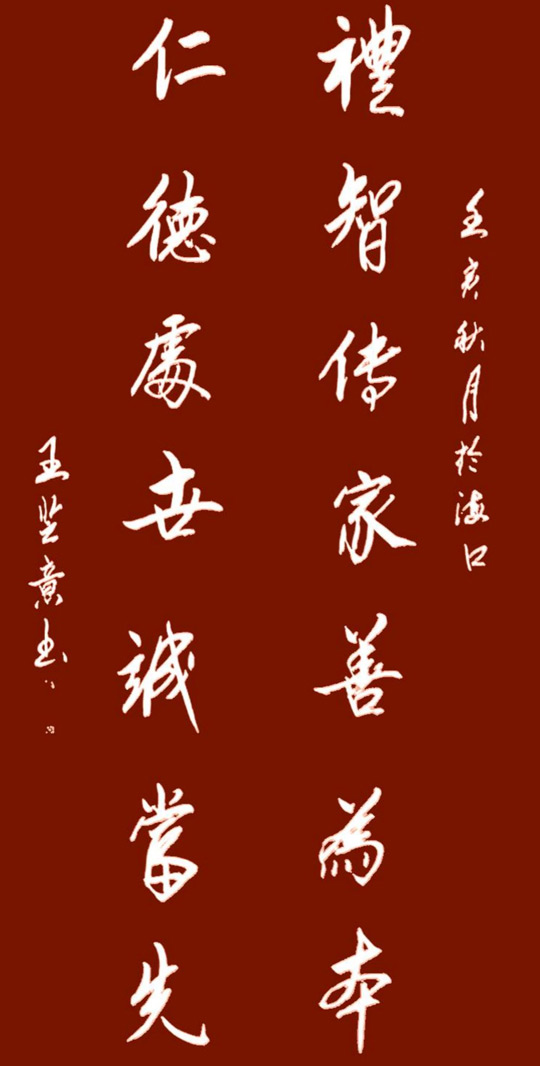 壬寅秋月於海口
禮智傳家善為本
仁德處世誠當先
王坚章书